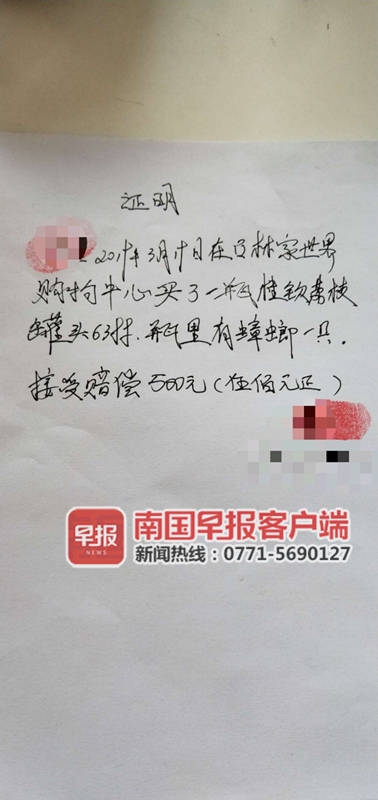 证明
2019年3月19日在百林家世界
购物中心买了一瓶桂钦荔枝
罐头,瓶里有蟑螂一只.
接受赔偿500元(伍佰元正)
早报
NEWS
南国早报客户端
新闻热线:0771-5690127